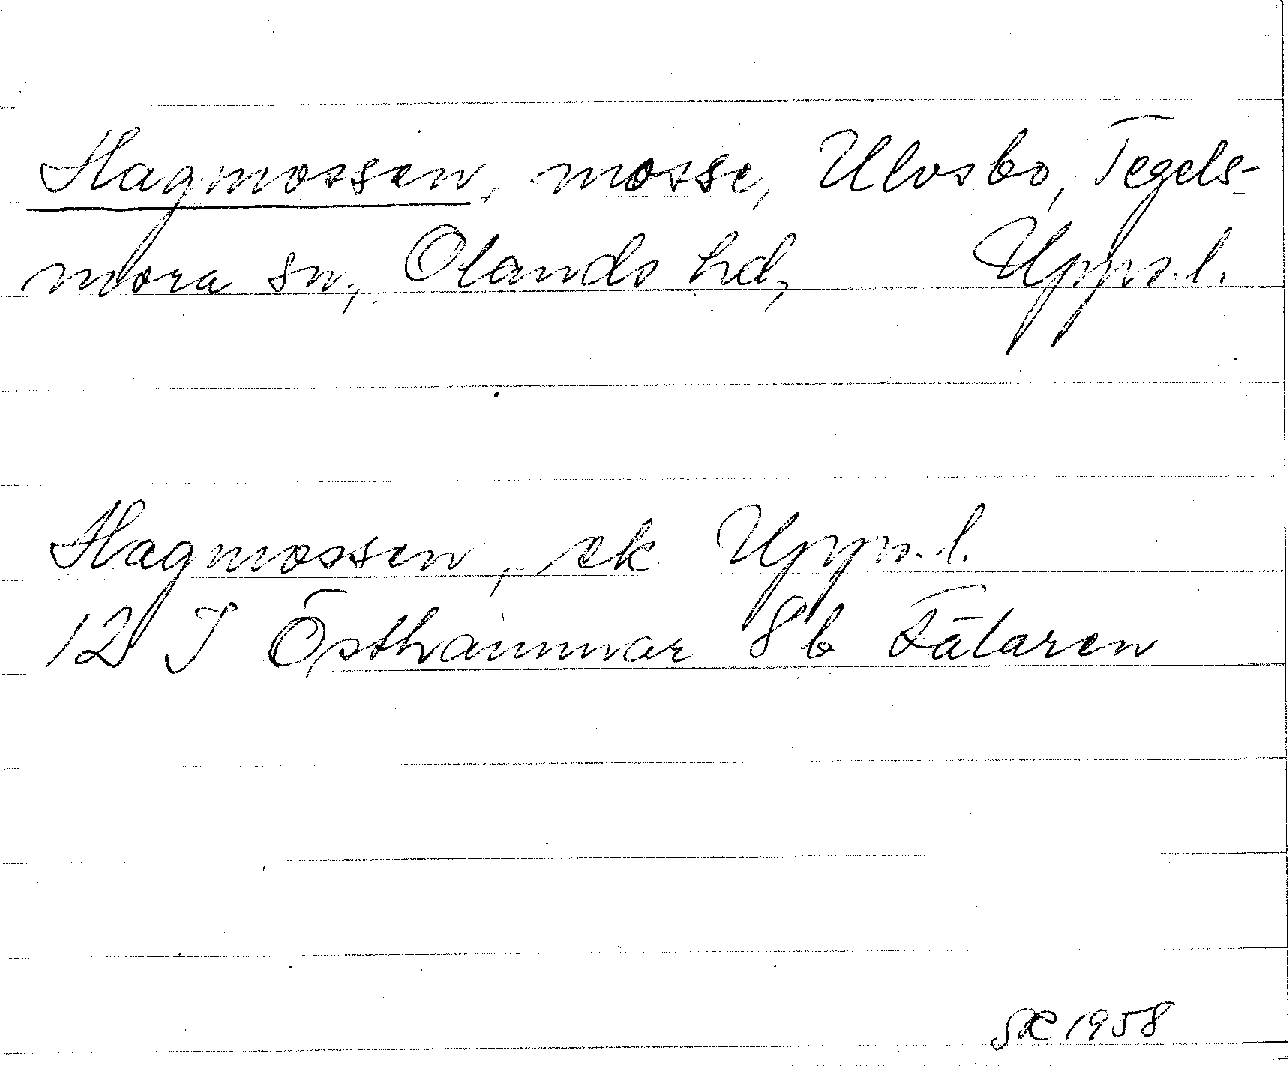 Hagmossen, mosse, Ulvsbo, Tegels-
mora sn, Olands hd, Uppl.
Hagmossen, ek Uppl.
12 I Östhammar 8 b Fälaren
1958